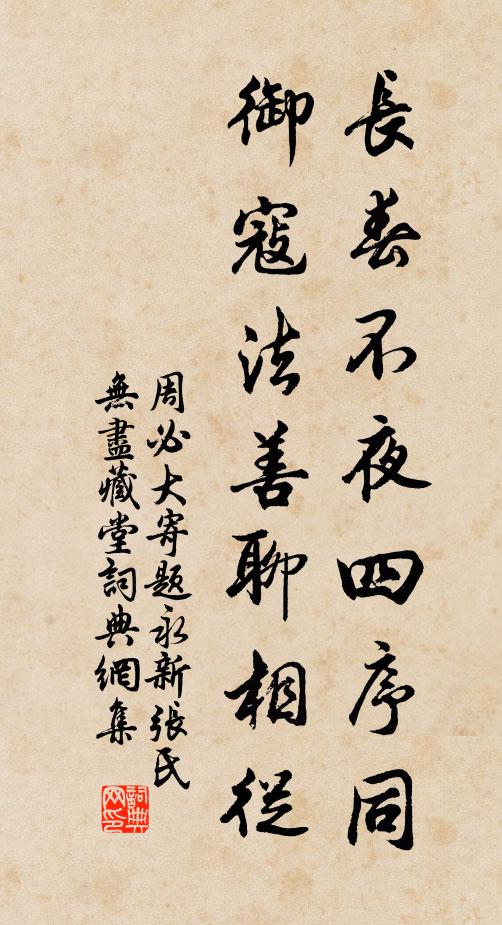 長春不夜四序同
御寇法善聊相從
周必大寄題永新張氏
無盡藏堂詞典網集
詞典網印